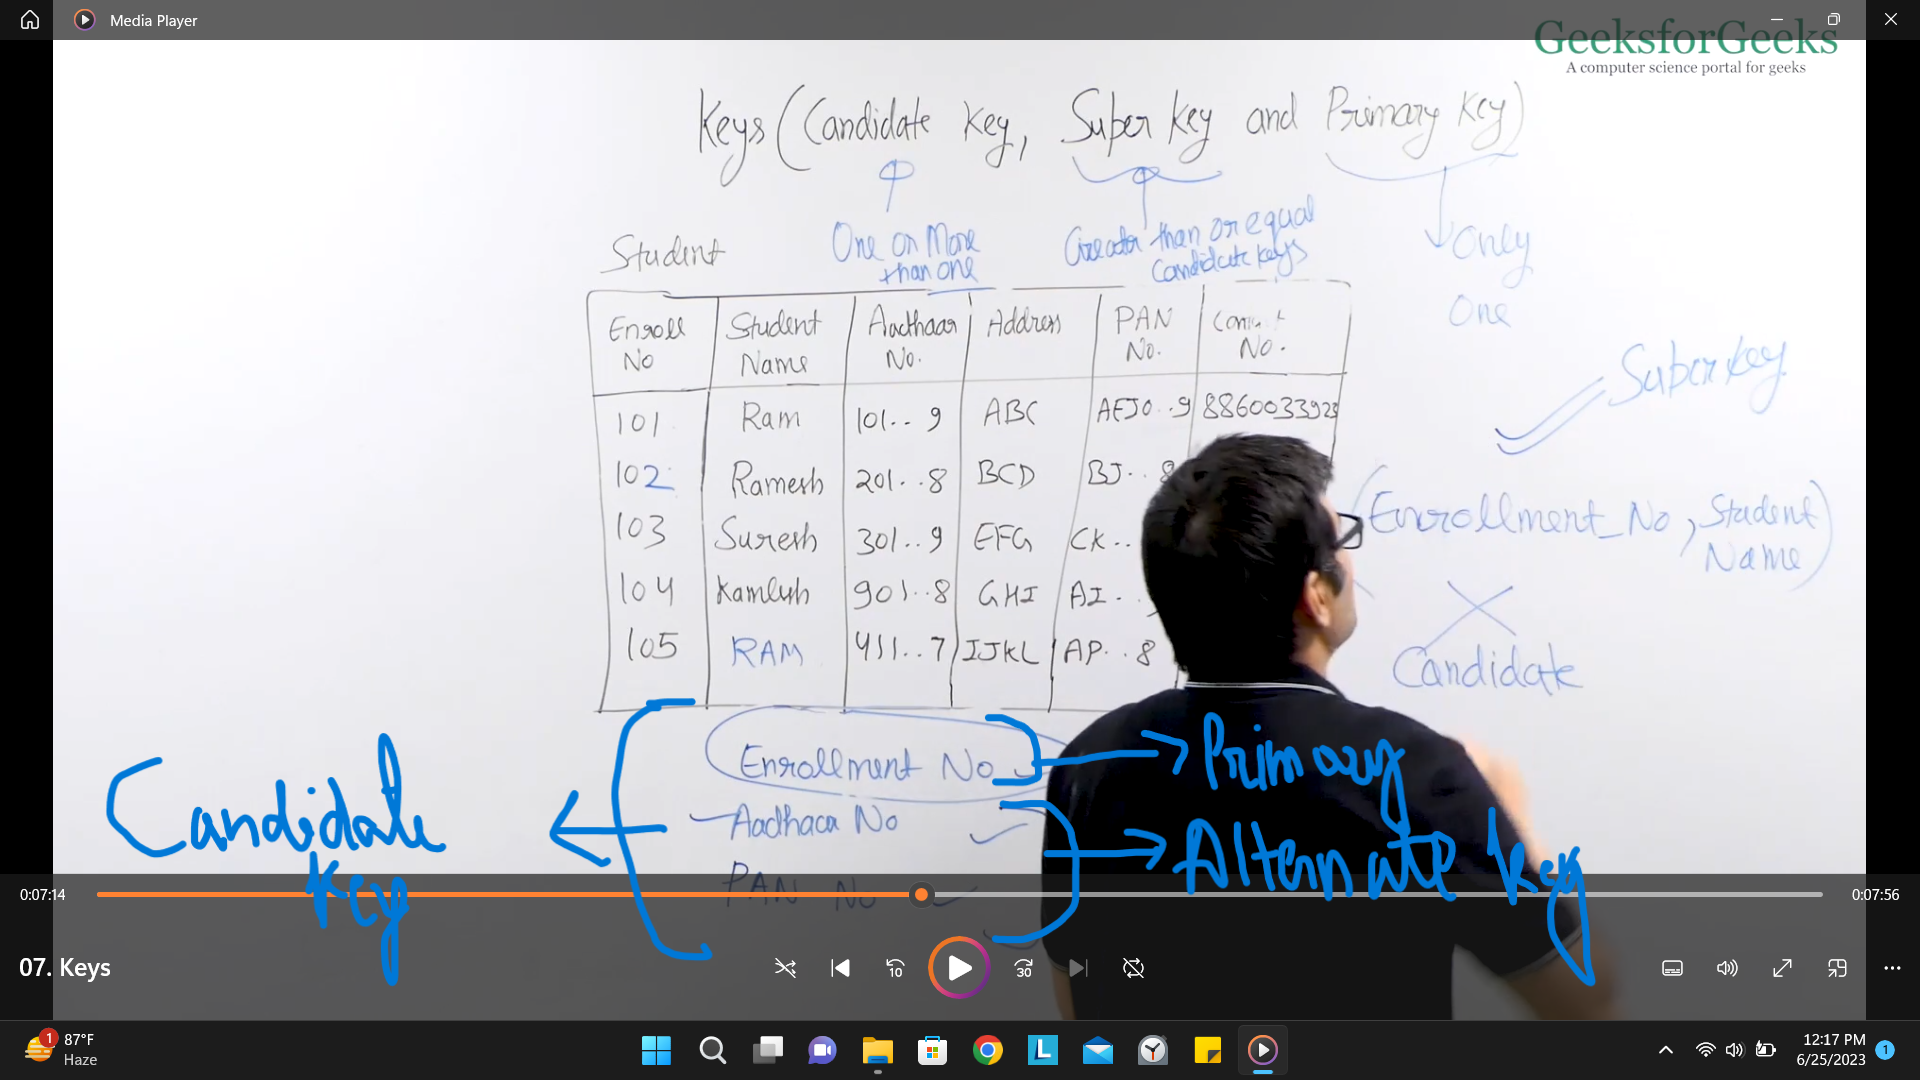 Media Player
GeeksforGeeks
A computer science portal for geeks
Keys (Candidate Key, Super Key and Primary Key)
One or More
than one
Greater than or equal
Candidate Keys
Only
One
Student
Enroll No Student Name Aadhaar No. Address PAN No. No.
101 Ram 101.. 9 ABC AEJO..9 8860033923
102 Ramesh 201..8 BCD BJ.. 8
103 Suresh 301..9 EFG CK..
104 Kamlesh 901..8 GHI AI.
105 RAM 411..7 IJKL AP..8
Super Key
(Enrollment_No, Student
Name)
Candidate
Enrollment No
Aadhaar No
PAN No
Primary
Alternate key
Candidate
key
0:07:14
0:07:56
07. Keys
10
30
1
87°F
Haze
L
12:17 PM
6/25/2023
1